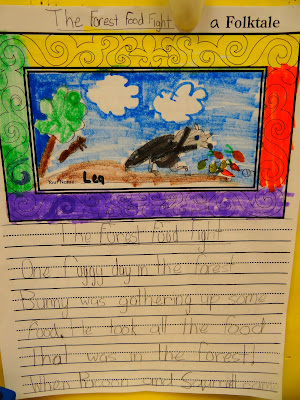 The Forest Food Fight a Folktale
Lea
The forest food fight
One foggy day in the forest
Bunny was gathering up some
food. He took all the food
that was in the forest!
When Racoon and Squirrell came